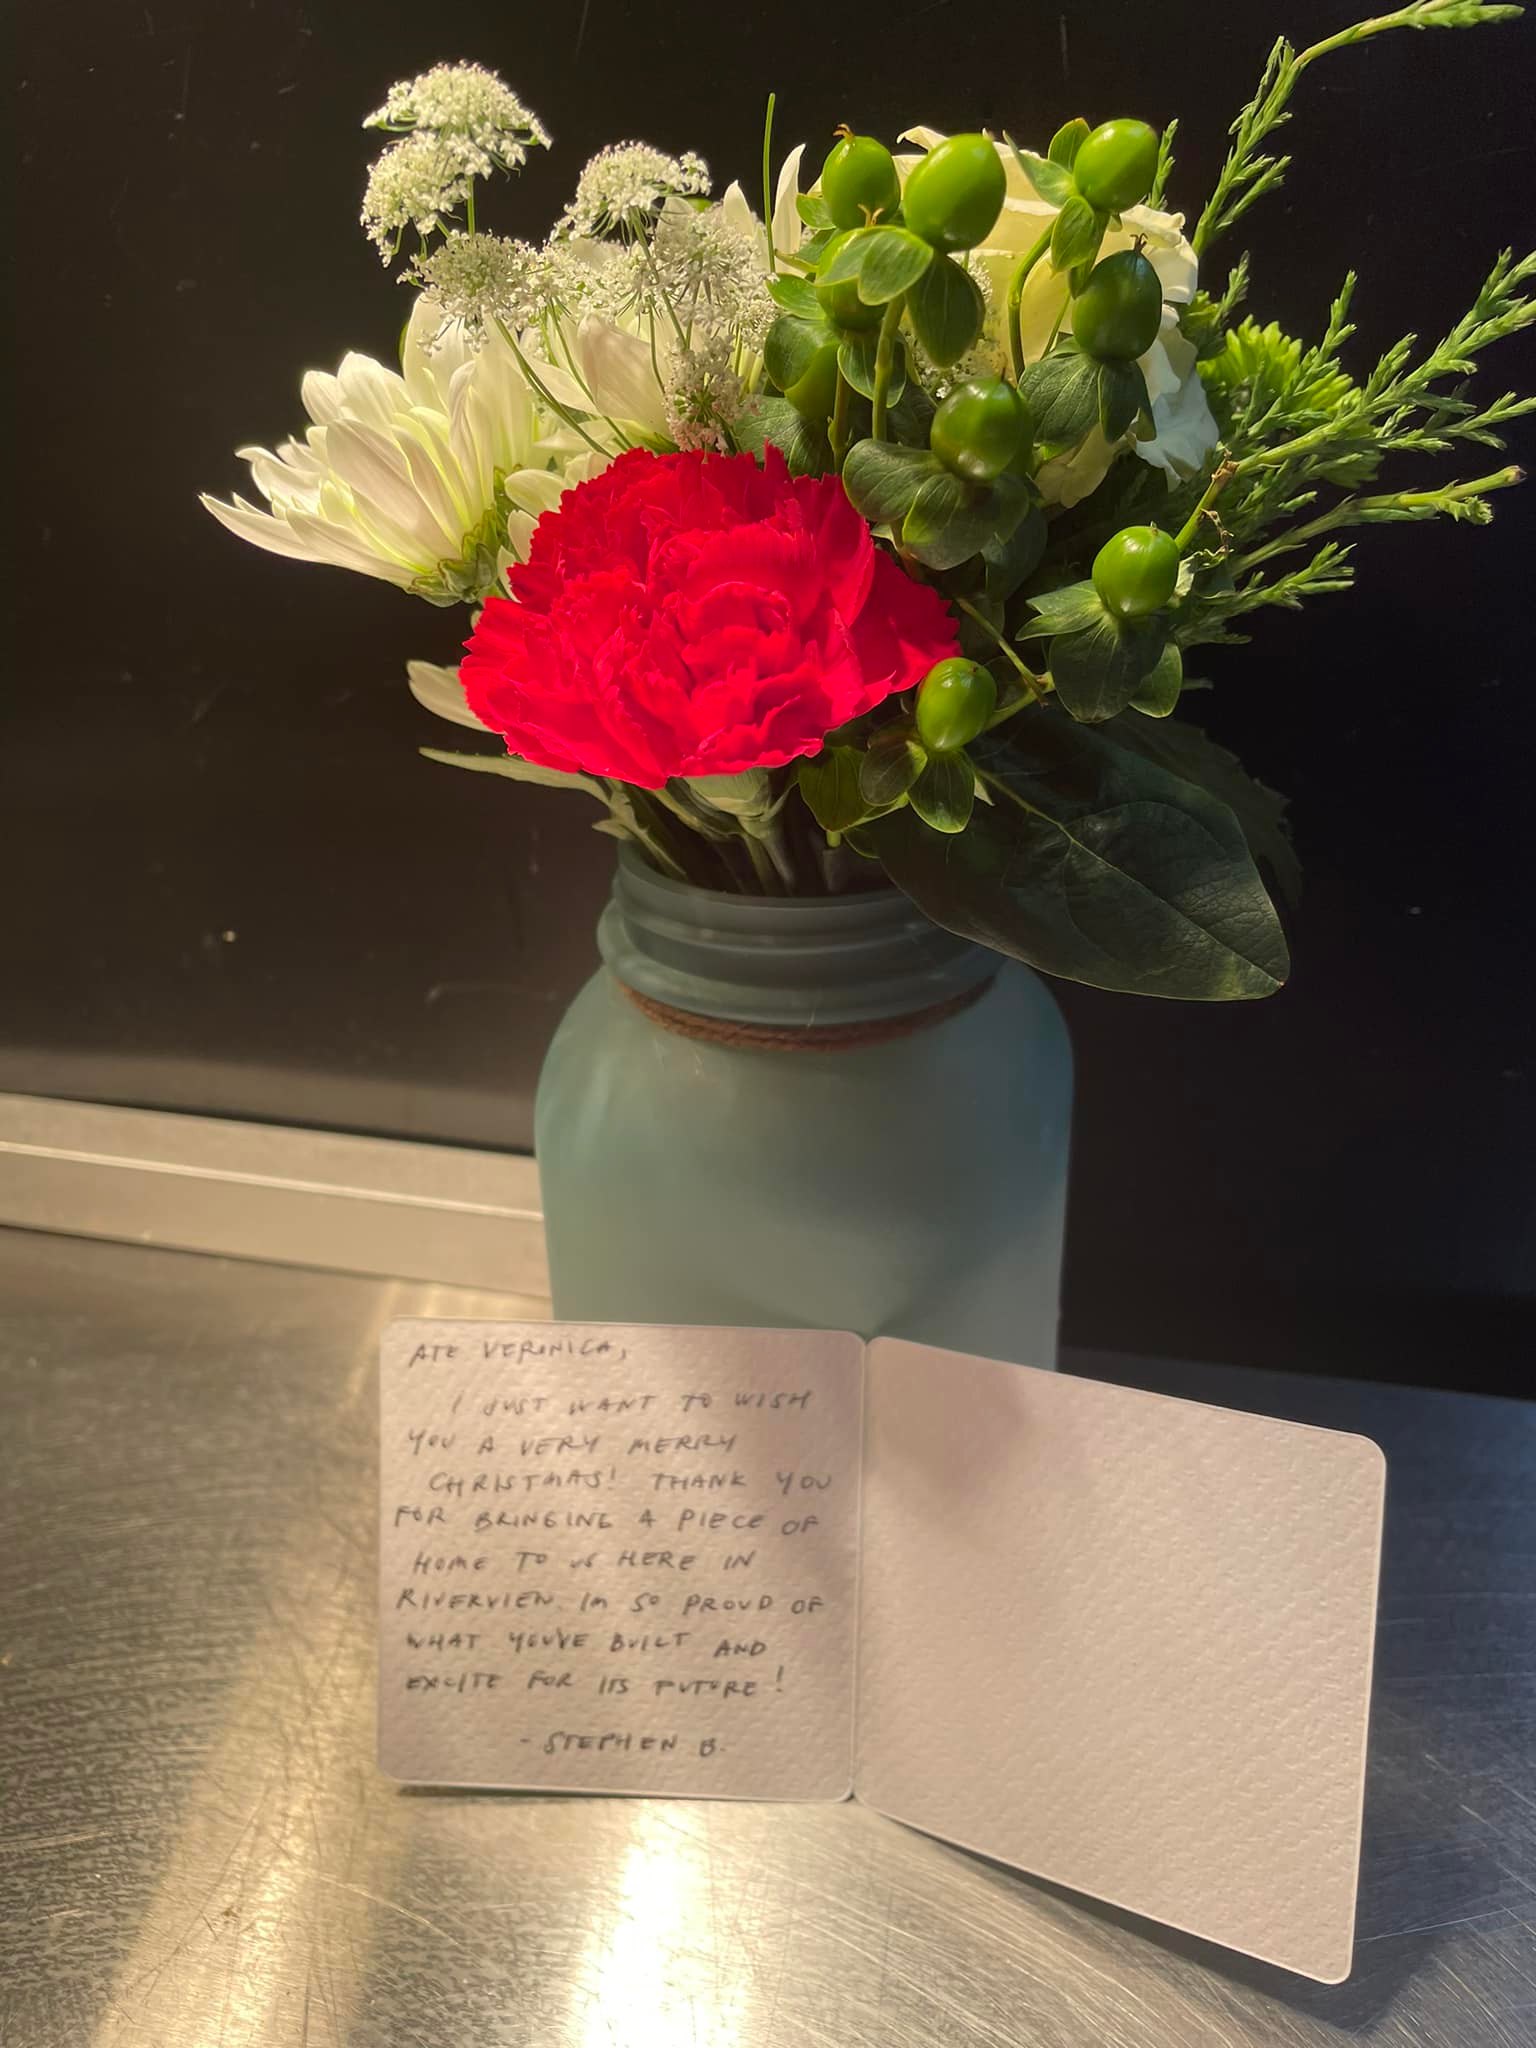 ATE VERONICA,
I JUST WANT TO WISH
YOU A VERY MERRY
CHRISTMAS! THANK YOU
FOR BRINGING A PIECE OF
HOME TO US HERE IN
RIVERVIEW. IM SO PROUD OF
WHAT YOU'VE BUILT AND
EXCITE FOR ITS FUTURE!
- STEPHEN B.